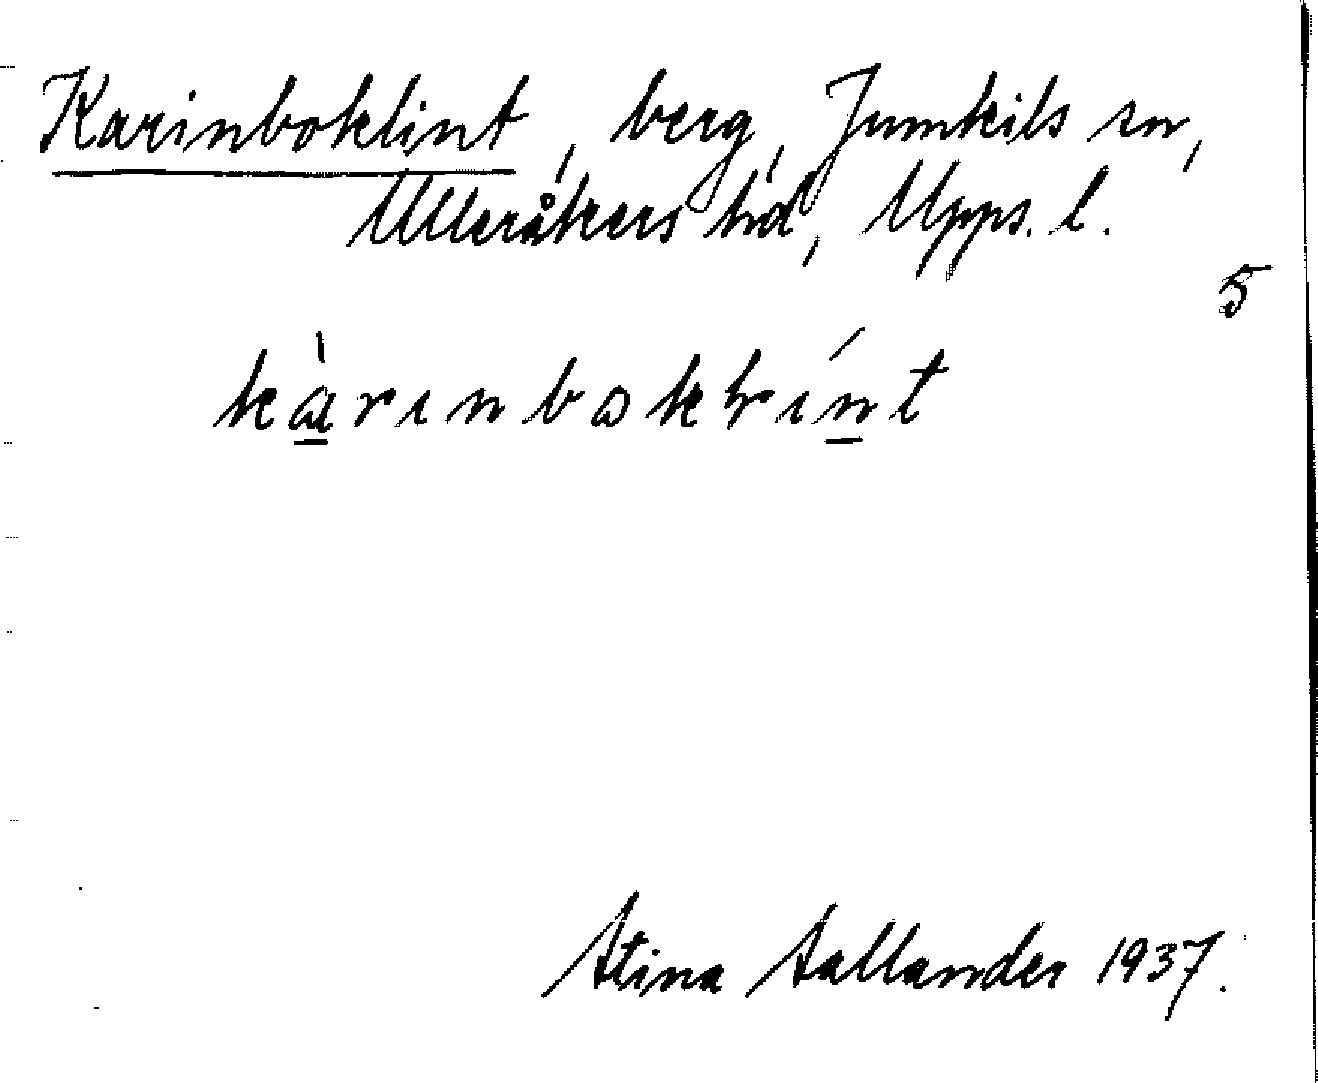 Karinboklint, berg, Jumkils sn,
Ulleråkers hd, Upps. l.
5
kàrınboklínt
Stina Sallander 1937.